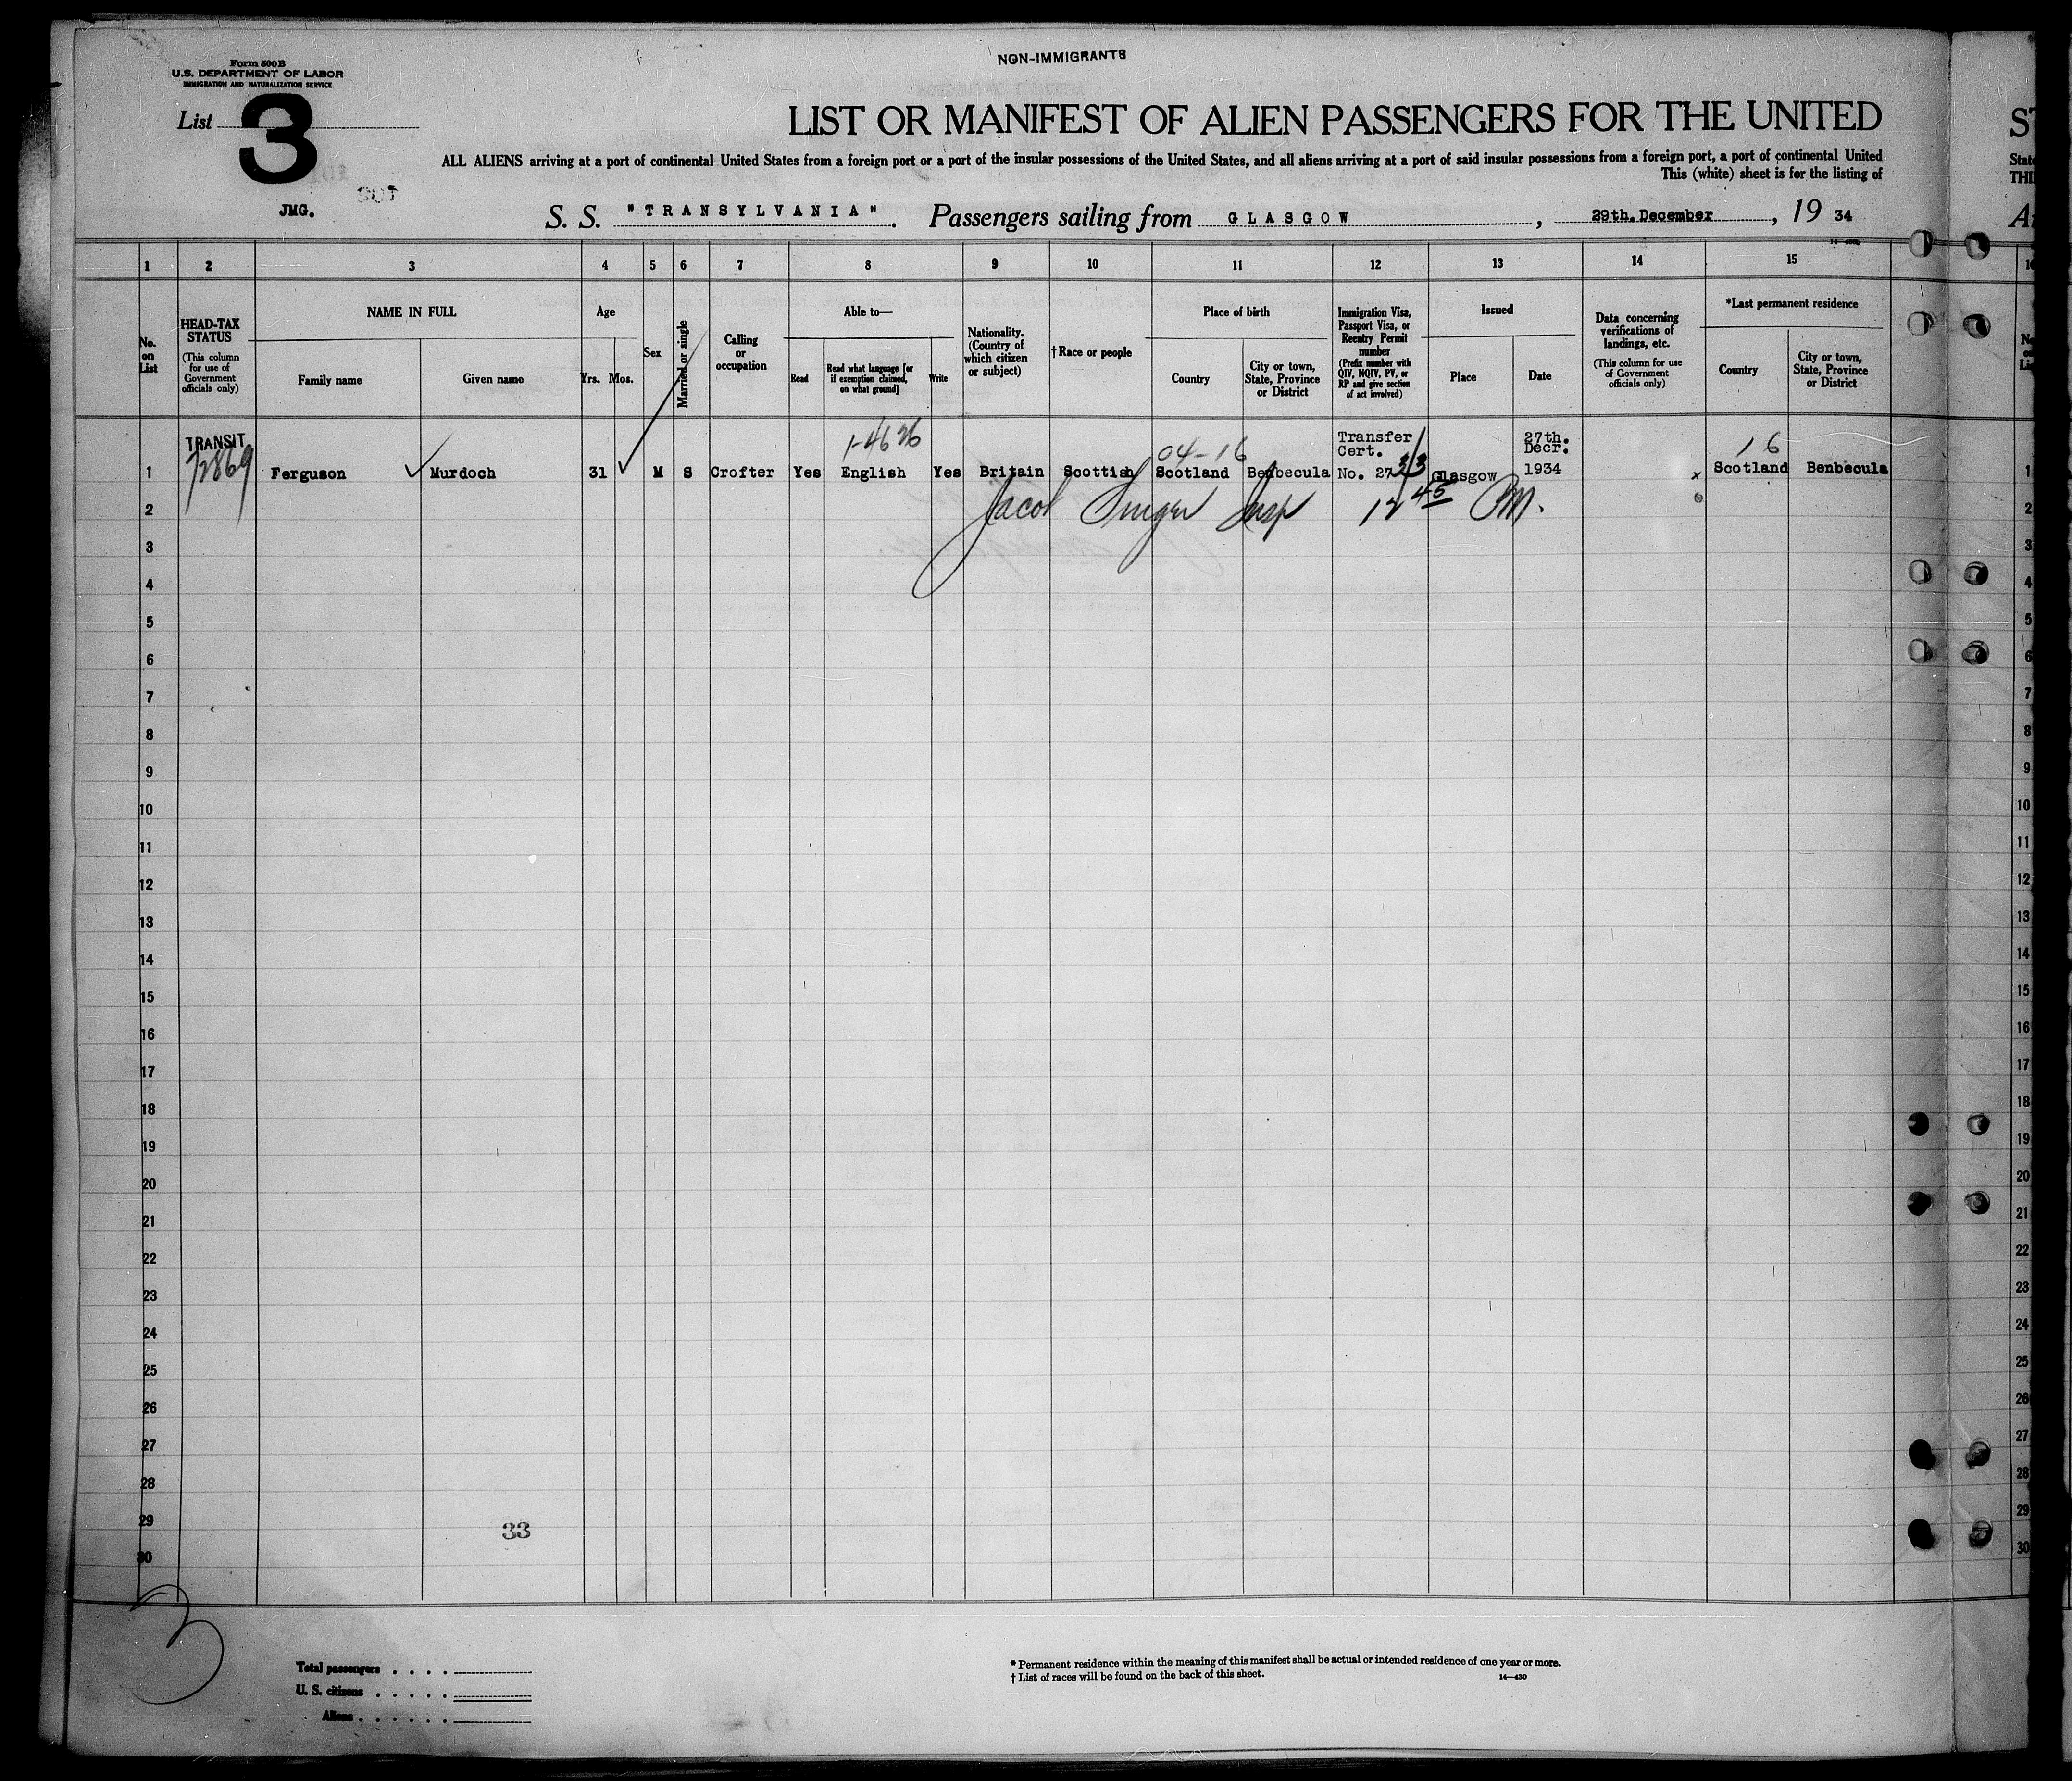 NON-IMMIGRANTS
Form 500B
U.S. DEPARTMENT OF LABOR
IMMIGRATION AND NATURALIZATION SERVICE
List 3
JMG.
LIST OR MANIFEST OF ALIEN PASSENGERS FOR THE UNITED
ALL ALIENS arriving at a port of continental United States from a foreign port or a port of the insular possessions of the United States, and all aliens arriving at a port of said insular possessions from a foreign port, a port of continental United
This (white) sheet is for the listing of
S. S. "TRANSYLVANIA". Passengers sailing from GLASGOW, 29th.December, 19 34
1 2 3 4 5 6 7 8 9 10 11 12 13 14 15
No. on List
HEAD-TAX STATUS
(This column for use of Government officials only)
NAME IN FULL
Family name Given name
Age
Yrs. Mos.
Sex
Married or single
Calling or occupation
Able to—
Read
Read what language [or if exemption claimed, on what ground]
Write
Nationality. (Country of which citizen or subject)
†Race or people
Place of birth
Country
City or town, State, Province or District
Immigration Visa, Passport Visa, or Reentry Permit number
(Prefix number with QIV, NQIV, PV, or RP and give section of act involved)
Issued
Place Date
Data concerning verifications of landings, etc.
(This column for use of Government officials only)
*Last permanent residence
Country
City or town, State, Province or District
TRANSIT 1-4626 04-16 Transfer Cert. 27th. Decr. 16
1 Ferguson Murdoch 31 M S Crofter Yes English Yes Britain Scottish Scotland Benbecula No. 27 3/3 Glasgow 1934 x Scotland Benbecula 1
2 Jacob Singer Insp 12 45 PM. 2
3 3
4 4
5 5
6 6
7 7
8 8
9 9
10 10
11 11
12 12
13 13
14 14
15 15
16 16
17 17
18 18
19 19
20 20
21 21
22 22
23 23
24 24
25 25
26 26
27 27
28 28
29 33 29
30 30
3
Total passengers
U. S. citizens
Aliens
* Permanent residence within the meaning of this manifest shall be actual or intended residence of one year or more.
† List of races will be found on the back of this sheet. 14—430